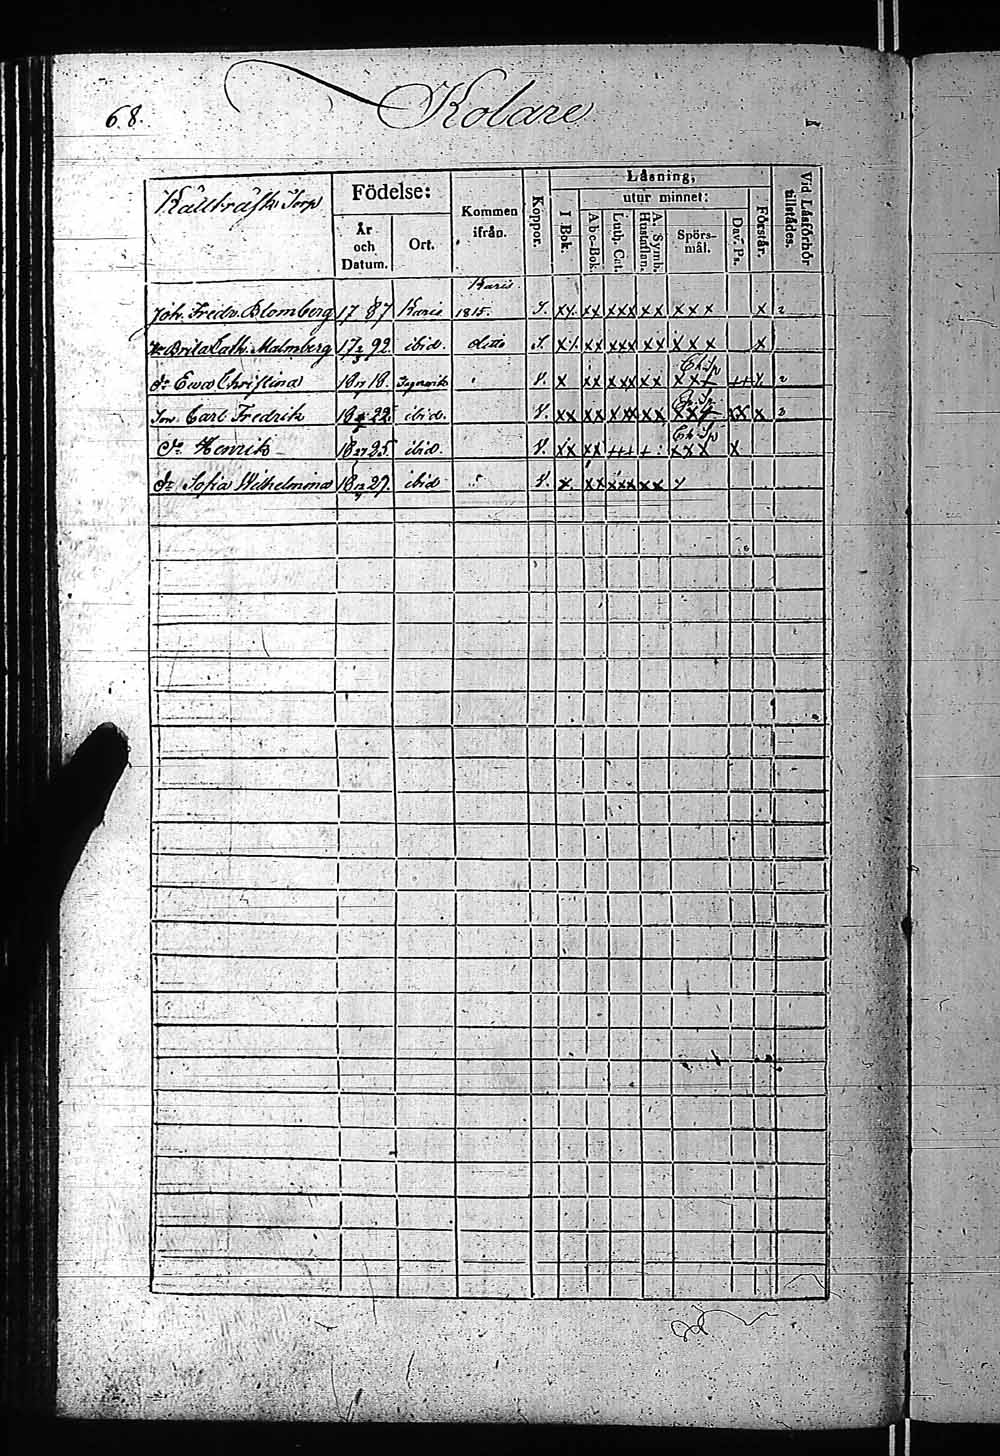 68.
Kolare
Källträsk Torp
Födelse:
År och Datum.
Ort.
Kommen ifrån.
Koppor.
Läsning,
I Bok.
utur minnet:
Abc-Bok.
Luth. Cat.
A. Symb. Hustaflan.
Spörs-mål.
Dav. Ps.
Förstår.
Vid Läsförhör tillstädes.
Karis.
Joh. Fredr. Blomberg 1787 Karis 1815. xxx xx xxx x 2
Brita Cath. Malmberg 17 92 ibid. ditto xx xxx xx xxx x
Ewa Christina 18 18. x xx xxx xx xxx 2
Carl Fredrik 18 22 ibid. V. xx xx xxx xx xx x
Henrik 18 25. ibid. V. xx xx +++ xxx x
Sofia Wilhelmina 18 27. ibid V. x xx xxx xx